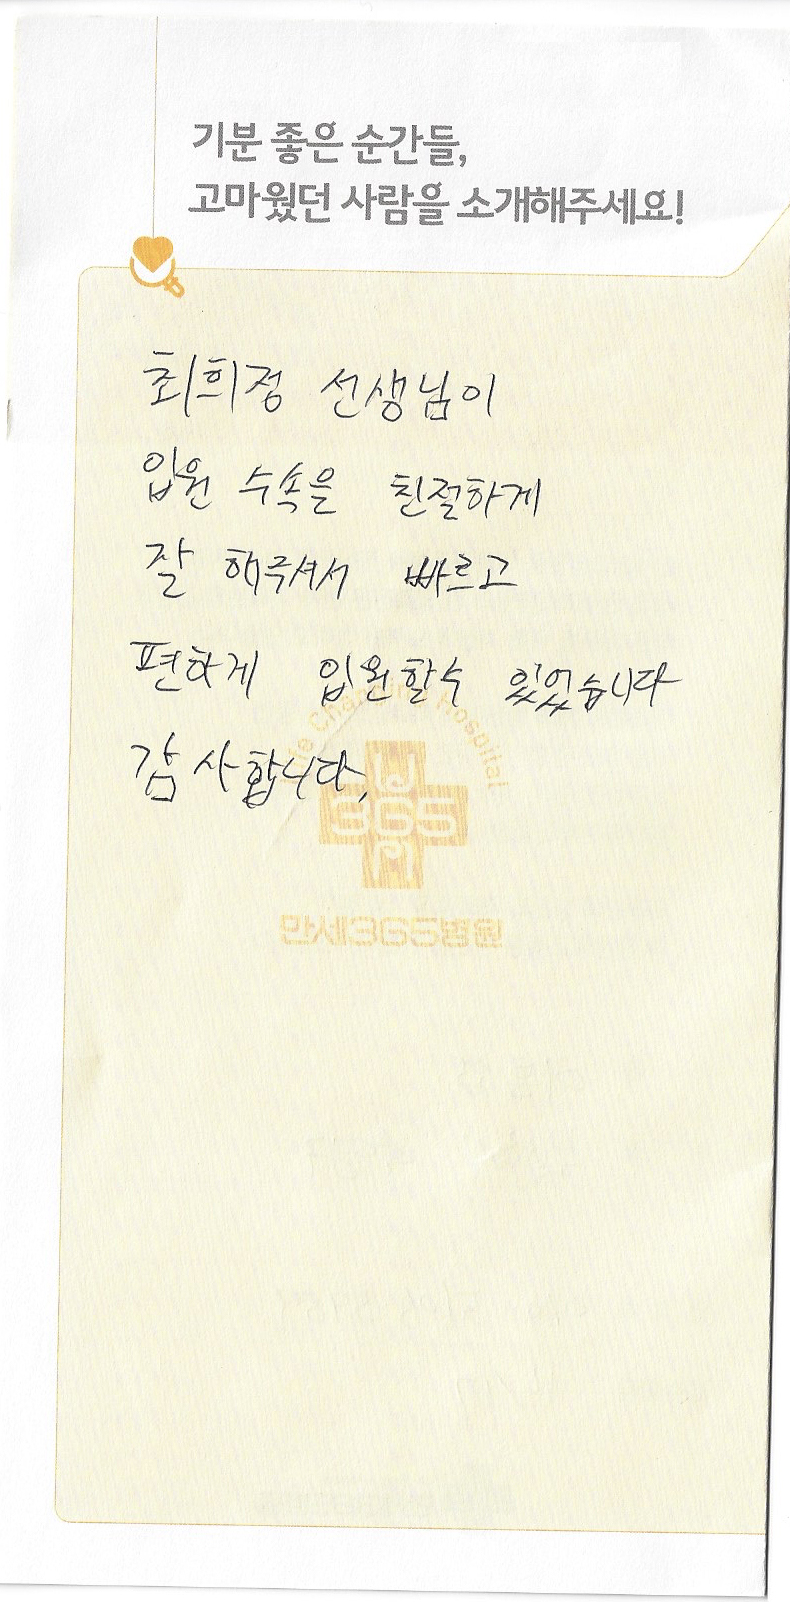 기분 좋은 순간들,
고마웠던 사람을 소개해주세요!
최희정 선생님이
입원 수속을 친절하게
잘 해주셔서 빠르고
편하게 입원할수 있었습니다
감사합니다.
Life Changing Hospital
365
만세365병원